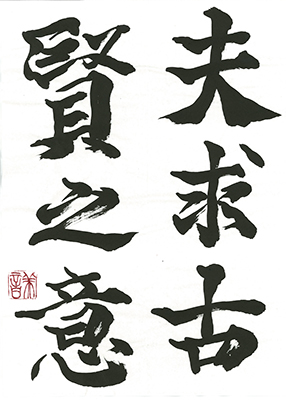 夫求古
賢之意